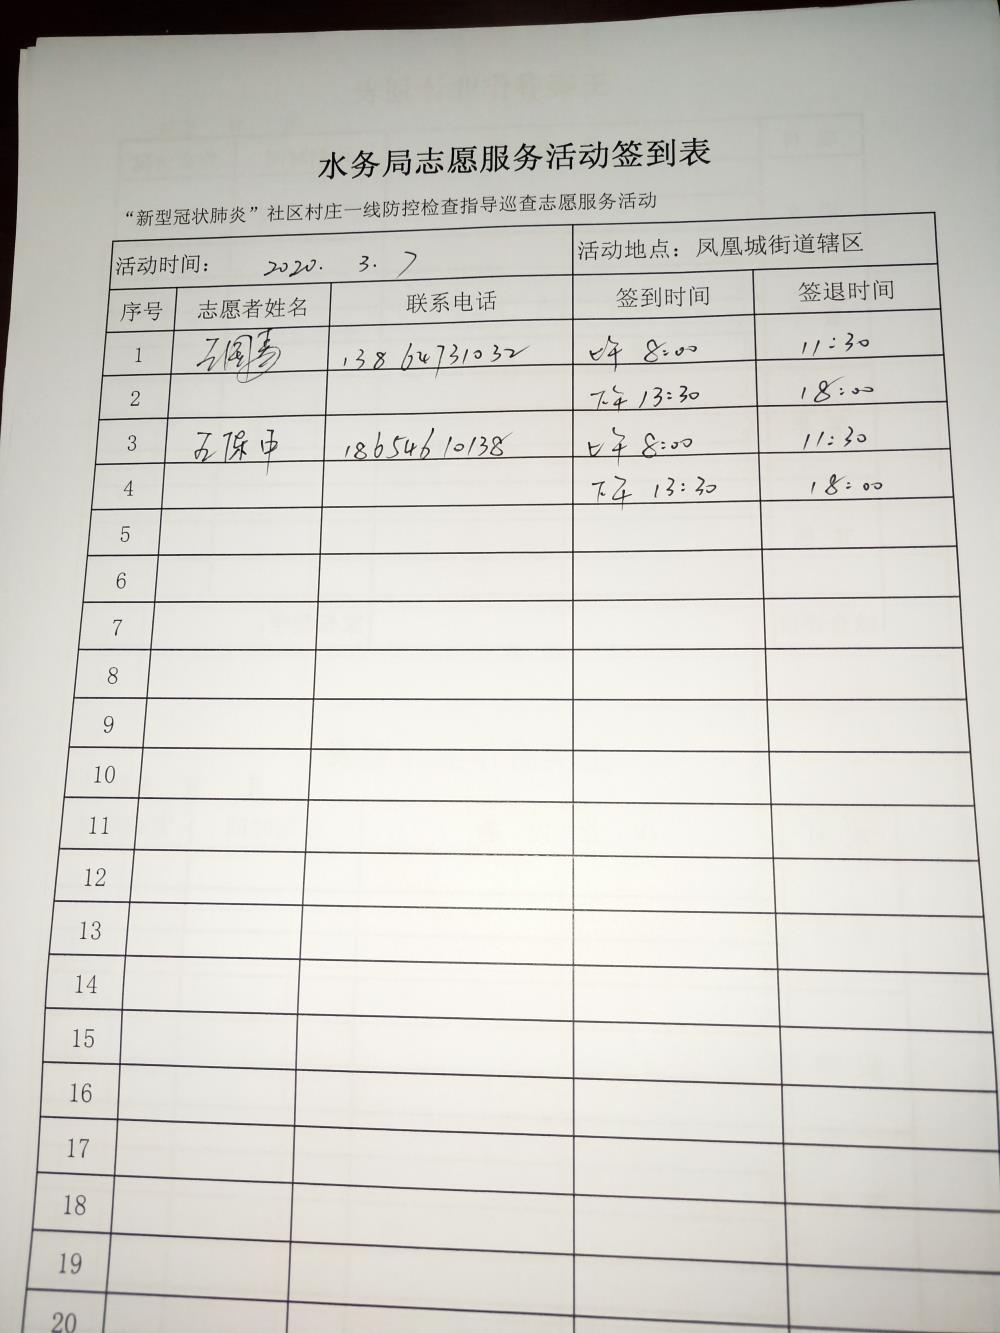 水务局志愿服务活动签到表
“新型冠状肺炎”社区村庄一线防控检查指导巡查志愿服务活动
活动时间： 2020. 3. 7 活动地点：凤凰城街道辖区
序号 志愿者姓名 联系电话 签到时间 签退时间
1 13864731032 上午 8:00 11:30
2 下午 13:30 18:00
3 18654610138 上午 8:00 11:30
4 下午 13:30 18:00
5
6
7
8
9
10
11
12
13
14
15
16
17
18
19
20